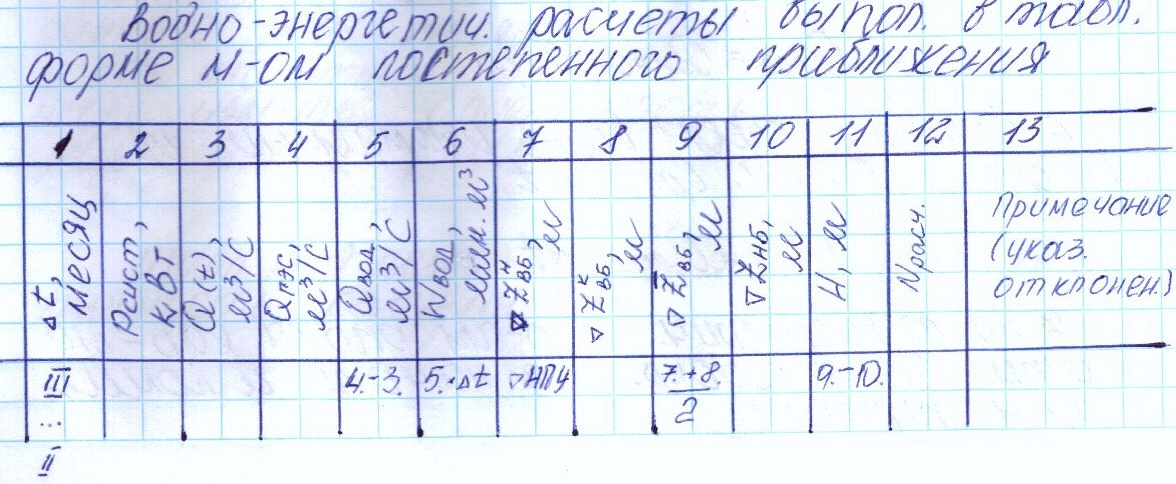 Водно-энергетич. расчеты выпол. в табл.
форме м-ом постепенного приближения
1 2 3 4 5 6 7 8 9 10 11 12 13
Δt, месяц
Pсист, кВт
Q(t), м³/с
Qгэс, м³/с
Qвод, м³/с
Wвод, млн. м³
∇Zᴴвб, м
∇Zᴷвб, м
∇Z̅вб, м
∇Zнб, м
H, м
Nрасч.
Примечание
(указ.
отклонен.)
III 4.-3. 5.·Δt ∇НПУ 7.+8. 9.-10.
... 2
II